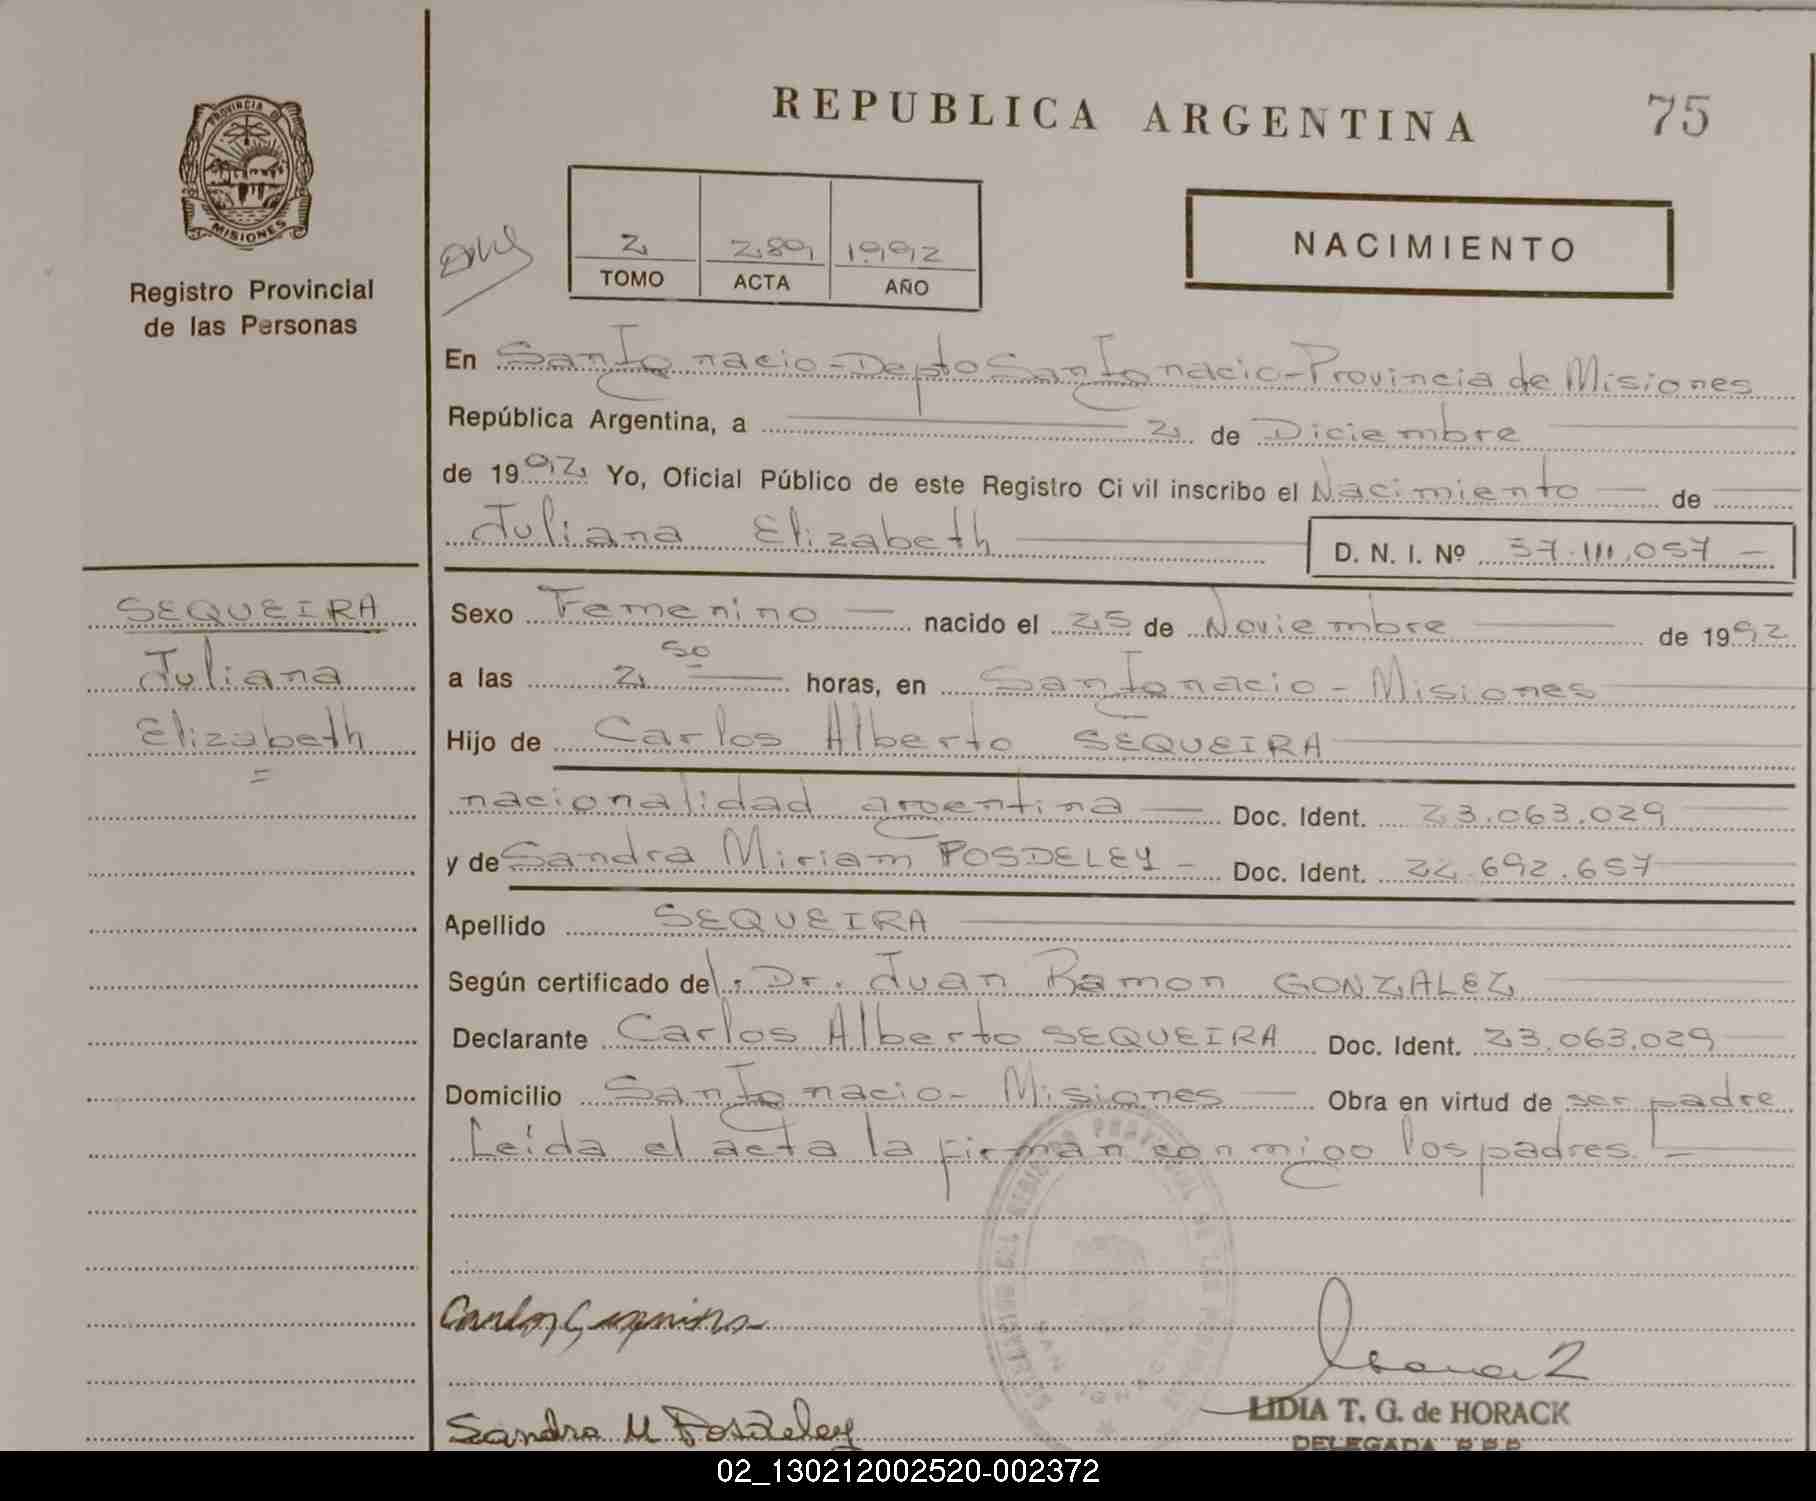 REPUBLICA ARGENTINA
75
PROVINCIA DE
MISIONES
Registro Provincial
de las Personas
2 289 1992
TOMO ACTA AÑO
NACIMIENTO
En San Ignacio - Depto San Ignacio - Provincia de Misiones
República Argentina, a 2 de Diciembre
de 1992 Yo, Oficial Público de este Registro Ci vil inscribo el Nacimiento de
Juliana Elizabeth D. N. I. Nº 37.111.057 -
SEQUEIRA
Juliana
Elizabeth
=
Sexo Femenino nacido el 25 de Noviembre de 1992
a las 2 50 horas, en San Ignacio - Misiones
Hijo de Carlos Alberto SEQUEIRA
nacionalidad argentina Doc. Ident. 23.063.029
y de Sandra Miriam POSDELEY - Doc. Ident. 22.692.657
Apellido SEQUEIRA
Según certificado del: Dr. Juan Ramon GONZALEZ
Declarante Carlos Alberto SEQUEIRA Doc. Ident. 23.063.029
Domicilio San Ignacio - Misiones Obra en virtud de ser padre
Leída el acta la firman conmigo los padres. -
SAN IGNACIO
Carlos Sequeira
Sandra M Posdeley
LIDIA T. G. de HORACK
DELEGADA R.P.P.
02_130212002520-002372